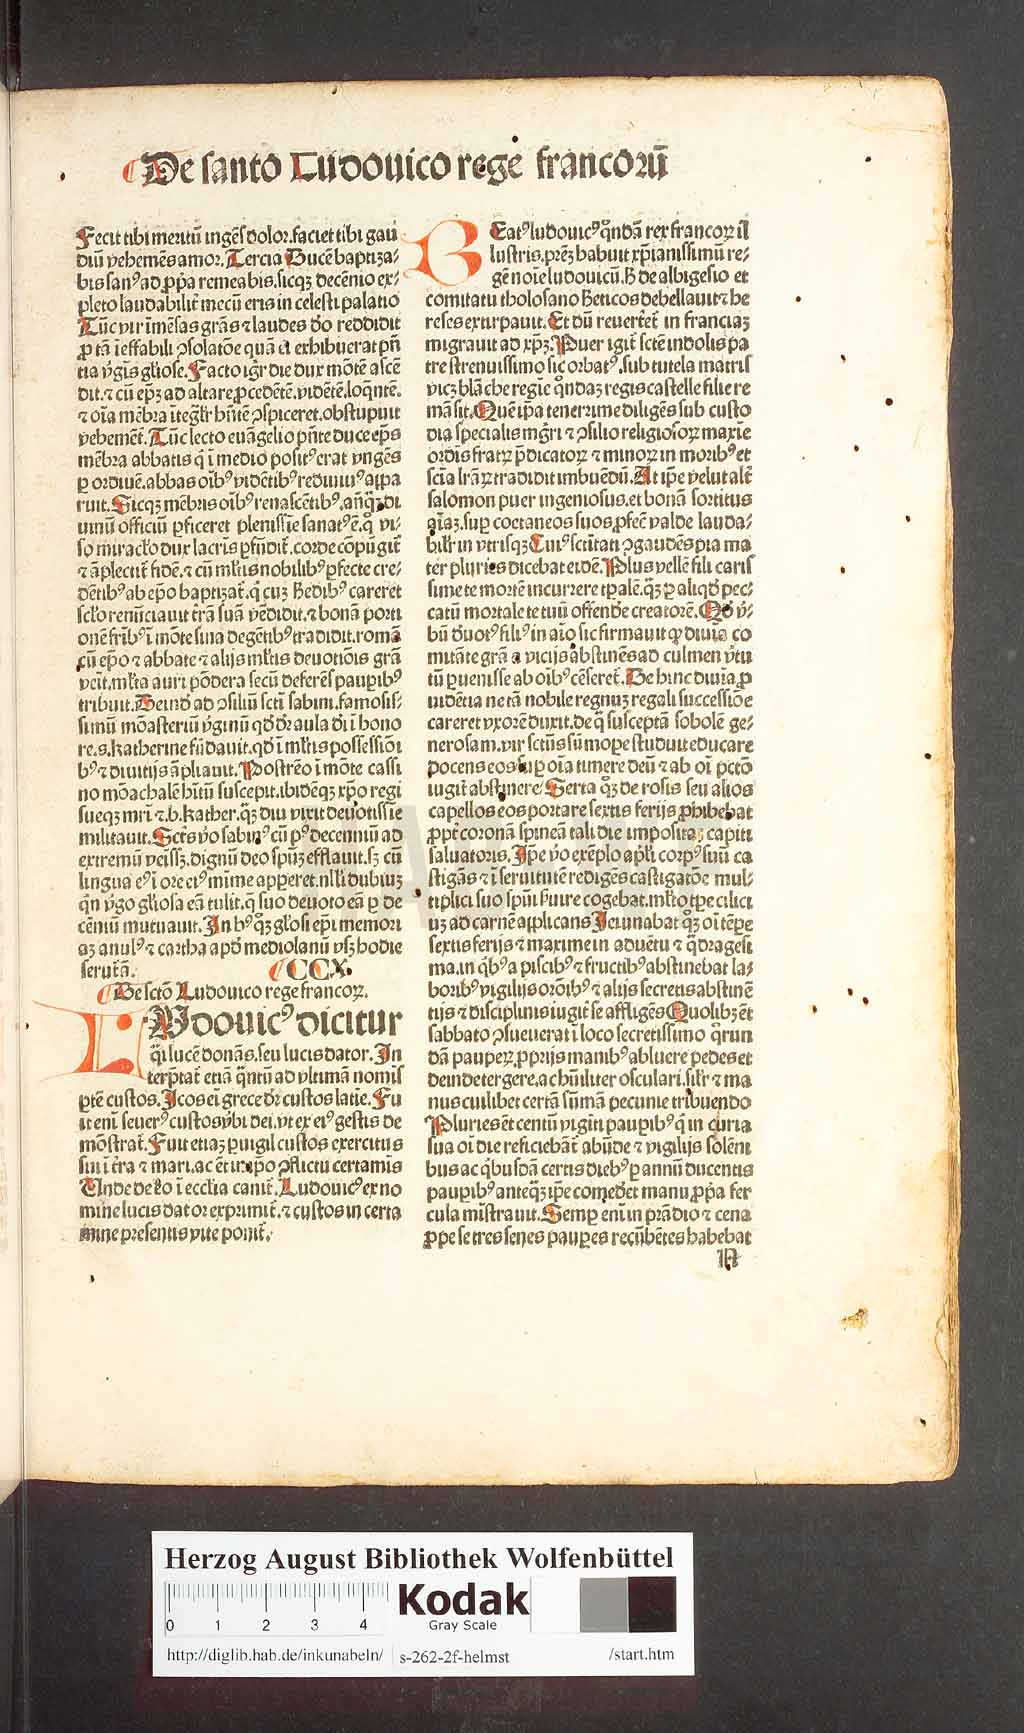 De santo Ludouico rege francorū
Fecit tibi meritū ingēs dolor. faciet tibi gau
diū vehemēs amor. Tercia Ducē baptiza⸗
bis sanꝰ ad ꝓpa remeabis. sicqꝫ decēnio ex⸗
pleto laudabilit̄ mecū eris in celesti palatio
Tūc vir īmēsas grās ⁊ laudes dn̄o reddidit
ꝓ tā ieffabili ꝯsolatōe quā ei exhibuerat pn̄
tia v̄gīs gl̓iose. Facto igr̄ die dux mōte ascē
dit. ⁊ cū ep̄ꝫ ad altare. ꝓcedēte. vidēte. loqn̄te.
⁊ oīa mēbra ītegl̓r hn̄te ꝯspiceret. obstupuit
vehemēt̄. Tūc lecto euāgelio pn̄te duce ep̄s
mēbra abbatis q̄ ī medio positꝰ erat vngēs
ꝑ ordinē. abbas oībꝰ vidētibꝰ rediuiuꝰ appa
ruit. Sicqꝫ mēbris oībꝰ renascētibꝰ. anq̄ꝫ di
uinū officiū ꝑficeret plenissīe sanatꝰ ē. q̊ vi⸗
so miracl̓o dux lacrīs ꝑfūdit̄. corde cōpūgit̄
⁊ āplectit̄ fidē. ⁊ cū ml̓tis nobilibꝰ ꝑfecte cre⸗
dētibꝰ ab ep̄o baptizat̄. q̄ cuꝫ h̓edibꝰ careret
scl̓o renūciauit t̄rā suā vēdidit. ⁊ bonā porti
onē fr̄ibꝰ ī mōte sina degētibꝰ tradidit. romā
cū ep̄o ⁊ abbate ⁊ alijs ml̓tis deuotiōis grā
veit. ml̓ta auri pōdera secū deferēs pauꝑibꝰ
tribuit. Deinď ad ꝯsiliū scti̅ sabini. famosis⸗
simū mōasteriū v̄ginū qď dr̄ aula di̅ ī hono
re. s. katherine fūdauit. qď ī ml̓tis possessiōi
bꝰ ⁊ diuitijs āpliauit. Postrēo ī mōte cassi
no mōachalē hītū suscepit. ibidēqꝫ xp̄o regi
sueqꝫ mr̄i ⁊. b. kather. q̄ꝫ diu vixit deuotissīe
militauit. Scts̅ vo̊ sabinꝰ cū pꝰ decenniū ad
extremū veīssꝫ. dignū deo spūꝫ efflauit. sꝫ cū
lingua eꝰ ī ore eiꝰ mīme appe̅ret. nl̓li dubiuꝫ
qn̄ v̄go gl̓iosa eā tulit. q̄ suo deuoto eā ꝑ de
cēniū mutuauit. In hꝰ q̊ꝫ gl̓osi ep̄i memori
aꝫ anulꝰ ⁊ cartha apď mediolanū vsꝫ hodie
serut̄ā.
CCX.
De sctō Ludouico rege francoꝝ.
LVdouicꝰ dicitur
q̄si lucē donās. seu lucis dator. In
terp̄tat̄ etiā q̄ntū ad vltimā nomīs
ꝑtē custos. Icos eī grece dr̄ custos latīe. Fu
it enī seuerꝰ custos v̓bi dei. vt ex eiꝰ gestis de
mōstrat̄. Fuit etiaꝫ puigil custos exercitus
sui ī t̄ra ⁊ mari. ac ēt īr xp̄o ꝯflictu certamīs
Unde de eo ī eccl̓ia canit̄. Ludouicꝰ ex no
mine lucis dator exprimit̄. ⁊ custos in certa
mine presentis vite ponit̄.
BEatꝰ ludouicꝰ q̊ndā rex francoꝝ il
lustris. pr̄eꝫ habuit xp̄ianissimū re⸗
gē noīe ludouicū. H̓ de albigesio et
comitatu tholosano h̓eticos debellauit ⁊ he
reses extirpauit. Et dū reuertet̄ in franciaꝫ
migrauit ad xp̄ꝫ. Puer igit̄ scte̅ indolis pa
tre strenuissimo sic orbatꝰ. sub tutela matris
vicꝫ blāche regīe q̊ndaꝫ regis castelle filie re
māsit. Quē ip̄a tenerrime diligēs sub custo
dia specialis mgr̄i ⁊ ꝯsilio religiosoꝝ maxīe
ordis fratꝝ p̄dicatoꝝ ⁊ minoꝝ in moribꝰ et
sciā lr̄aꝝ tradidit imbuēdū. At ip̄e velut alt̄
salomon puer ingeniosus. et bonā sortitus
aīaꝫ. suꝑ coetaneos suos. ꝓfec̄ valde lauda⸗
bilit̄ in vtrisqꝫ. Cuiꝰ sctītati ꝯgaudēs pia ma
ter pluries dicebat eidē. Plus vellē fili cariſ
sime te mortē incurrere tꝑalē. q̄ꝫ ꝑ aliqď pec⸗
catū mortale te tuū offende̅ creatorē. Qď v̓⸗
bū deuotꝰ filiꝰ in aīo sic firmauit ꝙ diuīa co
mitāte grā a vicijs abstinēs ad culmen v̓tu
tū ꝑuenisse ab oībꝰ cēseret̄. De hinc diuīa ꝓ
uidētia ne tā nobile regnuꝫ regali successiōe
careret vxorē duxit. de q̄ susceptā sobolē ge⸗
nerosam. vir sctu̅s sūmope studuit educare
docens eos suꝑ oīa timere deū ⁊ ab oī pctō
iugit̄ abstinere. Serta q̊ꝫ de rosis seu alios
capellos eos portare sextis ferijs ꝓhibebat
ꝓpt̄ coronā spineā tali die impositaꝫ capiti
saluatoris. Ip̄e vo̊ exēplo apl̓i corpꝰ suū ca
stigās ⁊ ī seruitutē redigēs castigatōe mul⸗
tiplici suo spūi buire cogebat. ml̓to tp̄e cilici
uꝫ ad carnē applicans. Ieiunabat q̊ꝫ oī tēpe
sextis ferijs ⁊ maxime in aduētu ⁊ q̄dragesi
ma. in q̄bꝰ a piscibꝰ ⁊ fructibꝰ abstinebat la⸗
boribꝰ vigilijs orōibꝰ ⁊ alijs secretis abstinē
tijs ⁊ disciplinis iugit̄ se affligēs. Quolibꝫ ēt
sabbato ꝯsueuerat ī loco secretissimo q̊run
dā paupeꝝ. ꝓprijs manibꝰ abluere pedes et
deinde tergere. ac hūiliter osculari. sil̓r ⁊ ma
nus cuilibet certā sūmā pecunie tribuendo
Pluries ēt centū viginti pauꝑibꝰ q̄ in curia
sua oī die reficiebāt̄ abūde ⁊ vigilijs solēni
bus ac q̄busdā certis diebꝰ ꝑ annū ducentis
pauꝑibꝰ anteq̄ꝫ ip̄e comedet̄ manu ꝓpa fer
cula mīstrauit. Semꝑ enī in prādio ⁊ cena
ꝓpe se tres senes pauꝑes recūbētes habebat
N
Herzog August Bibliothek Wolfenbüttel
0 1 2 3 4
Kodak
Gray Scale
http://diglib.hab.de/inkunabeln/ s-262-2f-helmst /start.htm